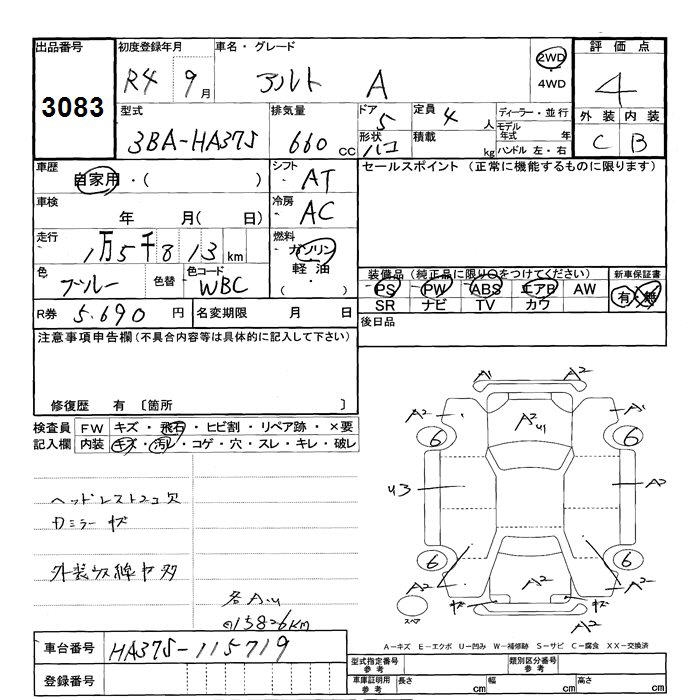 出品番号 初度登録年月 車名・グレード 2WD 評価点
3083 R4 9月 アルト A ・4WD 4
型式 排気量 ドア 5 定員 4人 ディーラー・並行 外装 内装
3BA-HA37S 660cc 形状 ハコ 積載 kg モデル年式 年 C B
ハンドル 左・右
車歴 自家用・( ) シフト AT セールスポイント (正常に機能するものに限ります)
車検 年 月( 日) 冷房 AC
走行 1万5千813km 燃料 ガソリン
軽油
・
( )
色 ブルー 色替 色コード WBC
装備品(純正品に限り○をつけてください) 新車保証書
PS PW ABS エアB AW 有・無
SR ナビ TV カワ
R券 5.690円 名変期限 月 日
後日品
注意事項申告欄(不具合内容等は具体的に記入して下さい)
修復歴 有 〔箇所 〕
検査員 FW キズ・飛石・ヒビ割・リペア跡・×要
記入欄 内装 キズ・汚レ・コゲ・穴・スレ・キレ・破レ
A1 A2
A2 A2 U1 A1
6 6
ヘッドレスト2コ欠
U3 A2
カミラー キズ
6 6
A2 A2 A2
外装 線キズ多
キズ キズ
スペア
各A,U
15826KM
A-キズ E-エクボ U-凹み W-補修跡 S-サビ C-腐食 XX-交換済
車台番号 HA37S-115719
型式指定番号 参考 類別区分番号 参考
登録番号
車庫証明用 参考 長さ cm 幅 cm 高さ cm